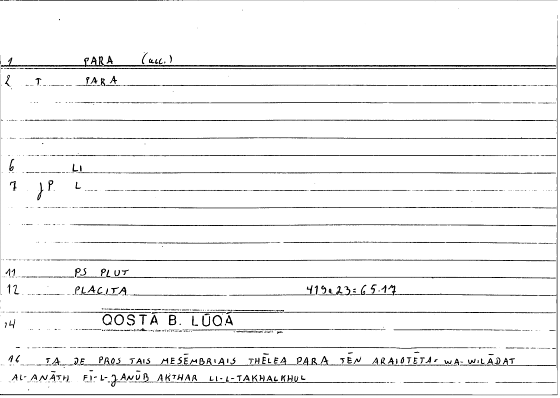 1 PARA (acc.)
2 T PARA
6 LI
7 JP L
11 PS PLUT
12 PLACITA 419a23=65.17
14 QOSṬĀ B. LŪQĀ
16 TA DE PROS TAIS MESĒMBRIAIS THĒLEA PARA TĒN ARAIOTĒTA= WA-WILĀDAT
AL-ANĀTH FĪ-L-JANŪB AKTHAR LI-L-TAKHALKHUL